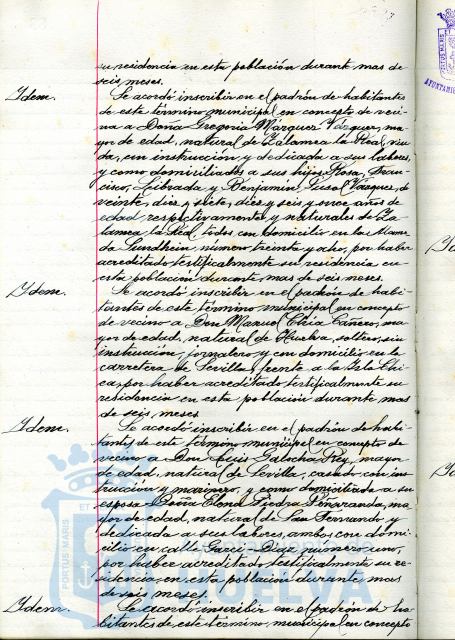 su residencia en esta población durante mas de
seis meses.
Idem. Se acordó inscribir en el padrón de habitantes
de este término municipal en concepto de veci-
na a Doña Gregoria Márquez Vázquez, ma-
yor de edad, natural de Zalamea la Real, viu-
da, sin instrucción y dedicada a sus labores,
y como domiciliados a sus hijos Rosa, Fran-
cisco, Librada y Benjamin Vázquez, de
veinte, diez y siete, diez y seis y once años de
edad respectivamente y naturales de Za-
lamea la Real, todos con domicilio en la
Sundheim, número treinta y ocho, por haber
acreditado testificalmente su residencia en
esta población durante mas de seis meses.
Idem. Se acordó inscribir en el padrón de habi-
tantes de este término municipal en concepto
de vecino a Don Manuel Cañero, ma-
yor de edad, natural de Huelva, soltero, sin
instrucción, jornalero y con domicilio en la
carretera de Sevilla, frente a la Isla Chi-
ca, por haber acreditado testificalmente su
residencia en esta población durante mas
de seis meses.
Idem. Se acordó inscribir en el padrón de habi-
tantes de este término municipal en concepto de
vecino a Don Luis Rey, mayor
de edad, natural de Sevilla, casado, con ins-
trucción y marinero, y como domiciliada a su
esposa Doña Elena Piedra Peñaranda, ma-
yor de edad, natural de San Fernando y
dedicada a sus labores, ambos con domi-
cilio en calle Garci Diaz número uno,
por haber acreditado testificalmente su re-
sidencia en esta población durante mas
de seis meses.
Idem. Se acordó inscribir en el padrón de ha-
bitantes de este término municipal en concepto
PORTUS MARIS
Ayuntamiento de
HUELVA
PORTUS MARIS
AYUNTAMI